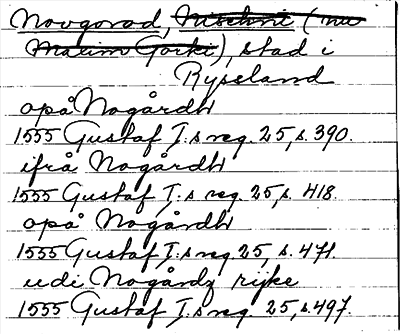 Novgorod, Nischni (nu
Maxim Gorki), stad i
Ryssland
opå Nogårdh
1555 Gustaf I:s reg. 25, s. 390.
ifrå Nogårdh
1555 Gustaf I:s reg. 25, s. 418.
opå Nogårdh
1555 Gustaf I:s reg 25, s. 471.
udi Nogårdz rijke
1555 Gustaf I,s reg. 25, s. 497.